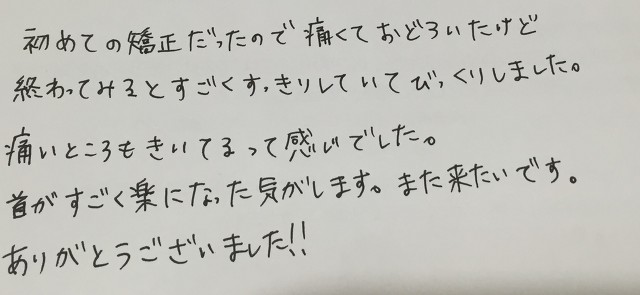 初めての矯正だったので痛くておどろいたけど
終わってみるとすごくすっきりしていてびっくりしました。
痛いところもきいてるって感じでした。
首がすごく楽になった気がします。また来たいです。
ありがとうございました!!